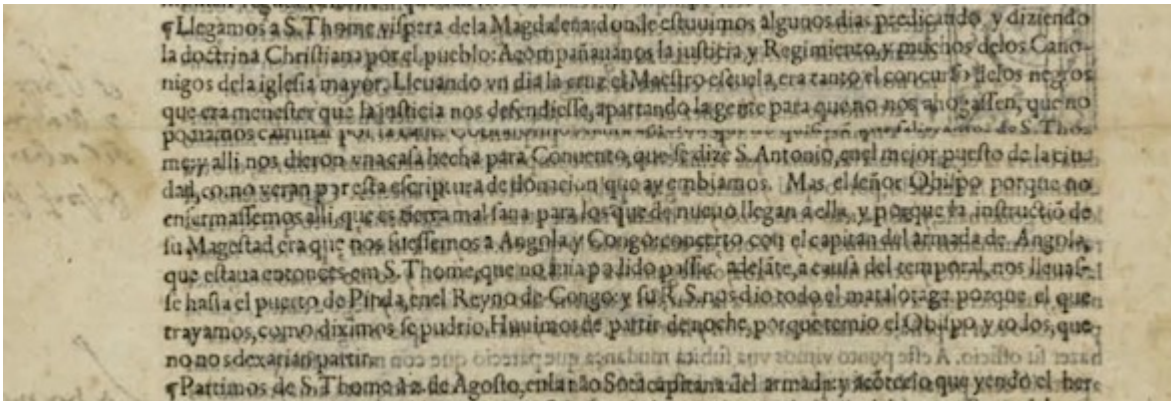 ¶Llegamos a S. Thome vispera dela Magdalena: donde estuuimos algunos dias predicando, y diziendo
la doctrina Christiana por el pueblo: Acompañauanos la justicia y Regimiento, y muchos delos Cano-
nigos dela iglesia mayor. Lleuando vn dia la cruz el Maestro escuela era tanto el concurso delos negros
que era menester que la justicia nos defendiesse, apartando la gente para que no nos ahogassen, que no
podiamos caminar por la de S. Tho-
me, y alli nos dieron vna casa hecha para Conuento, que se dize S. Antonio, enel mejor puesto de la ciu
dad, como veran por esta escriptura de donacion que ay embiamos. Mas el señor Obispo porque no
enfermassemos alli, que es tierra mal sana para los que de nueuo llegan a ella, y porque la instructiõ de
su Magestad era que nos fuessemos a Angola y Congo: concerto con el capitan del armada de Angola,
que estaua entonces em S. Thome, que no auia podido passar adelãte, a causa del temporal, nos lleuas-
se hasta el puerto de Pinda, enel Reyno de Congo: y su R. S. nos dio todo el matalotage porque el que
trayamos, como diximos se pudrio. Huuimos de partir de noche, porque temio el Obispo y todos, que
no nos dexarian partir.
¶Partimos de S. Thome a 2. de Agosto, enla não Sotacapitana del armada: y acõtecio que yendo el her